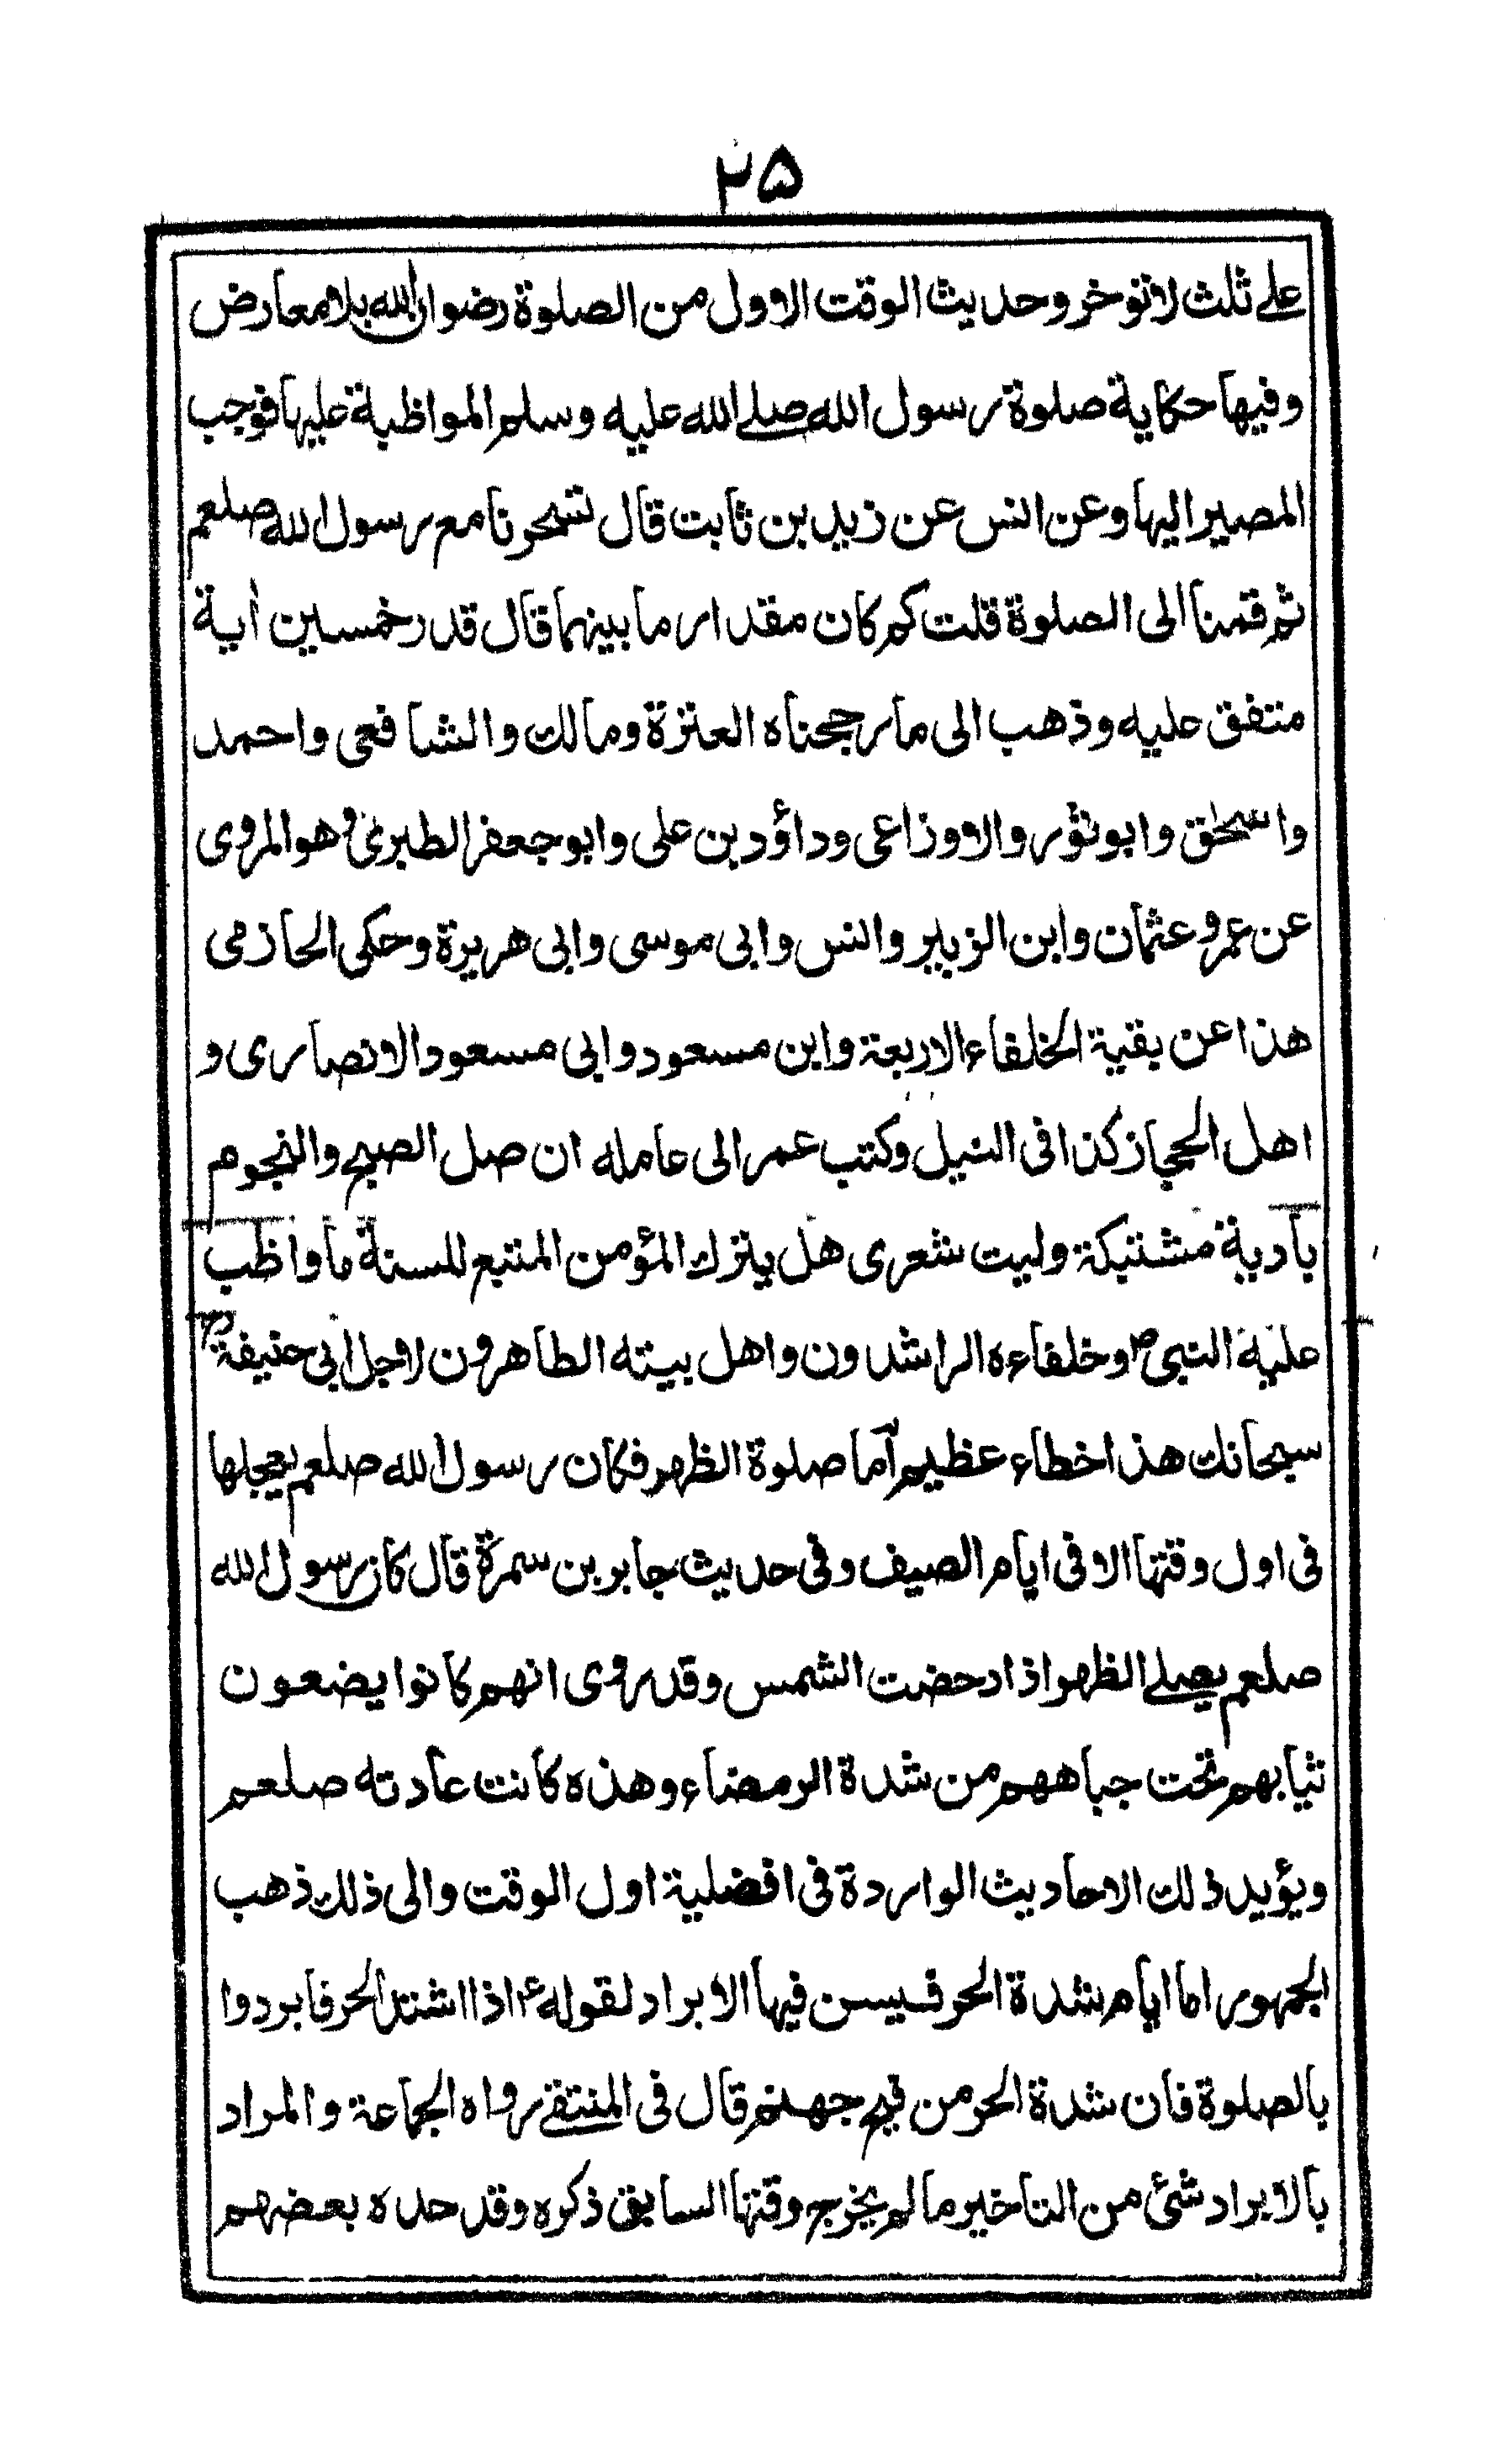 ۲۵
علے ثلث لا تؤخر وحديث الوقت الاول من الصلوة رضوان الله بلا معارض
وفيها حكاية صلوة رسول الله صلے الله عليه وسلم المواظبة عليها فوجب
المصير اليها وعن انس عن زيد بن ثابت قال تسحرنا مع رسول الله صلعم
ثم قمنا الى الصلوة قلت كم كان مقدار ما بينهما قال قدر خمسين أية
متفق عليه وذهب الى ما رجحناه العترة ومالك والشافعى واحمد
واسحٰق وابوثور والاوزاعى وداؤد بن على وابوجعفر الطبرى وهو المروى
عن عمر وعثمان وابن الزبير وانس وابى موسى وابى هريرة وحكى الحازمى
هذا عن بقية الخلفاء الاربعة وابن مسعود وابى مسعود الانصارى و
اهل الحجاز كذا فى النيل وكتب عمر الى عامله ان صل الصبح والنجوم
بادية مشتبكة وليت شعرى هل يترك المؤمن المتبع للسنة ما واظب
عليه النبى ؐ وخلفاءه الراشدون واهل بيته الطاهرون لاجل ابى حنيفة رح
سبحانك هذا خطاء عظيم أما صلوة الظهر فكان رسول الله صلعم يعجلها
فى اول وقتها الا فى ايام الصيف وفى حديث جابر بن سمرة قال كان رسول الله
صلعم يصلے الظهر اذا دحضت الشمس وقد روى انهم كانوا يضعون
ثيابهم تحت جباههم من شدة الرمضاء وهذه كانت عادته صلعم
ويؤيد ذلك الاحاديث الواردة فى افضلية اول الوقت والى ذلك ذهب
الجمهور اما ايام شدة الحر فيسن فيها الابراد لقوله ؑ اذا اشتد الحر فابردوا
بالصلوة فان شدة الحر من فيح جهنم قال فى المنتقے رواه الجماعة والمراد
بالابراد شئ من التاخير ما لم يخرج وقتها السابق ذكره وقد حده بعضهم